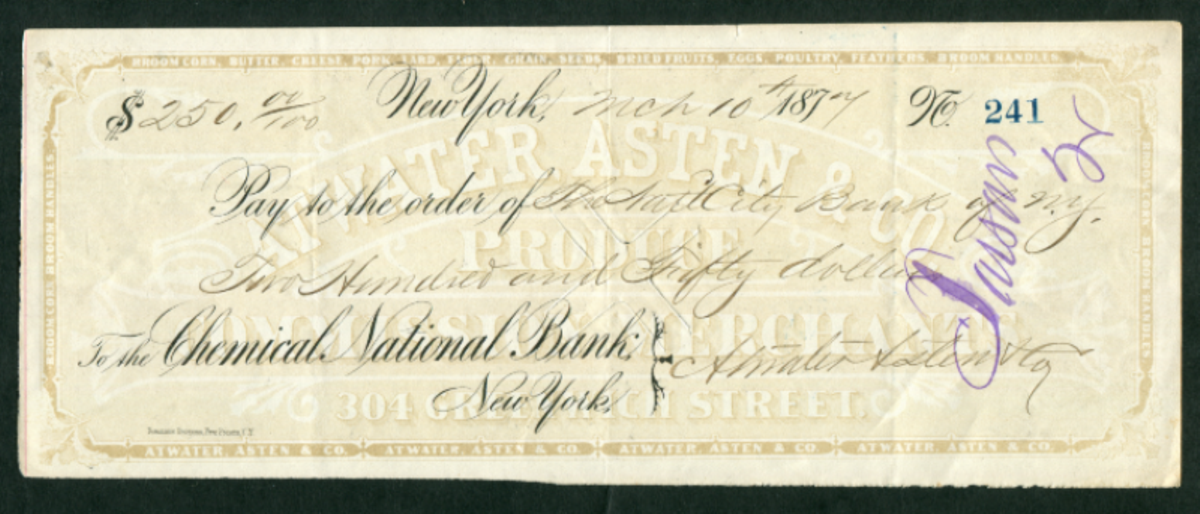 BROOM CORN, BUTTER, CHEESE, PORK, LARD, FLOUR, GRAIN, SEEDS, DRIED FRUITS, EGGS, POULTRY, FEATHERS, BROOM HANDLES
$ 250. 00/100 New York, Mch 10th 1877 No. 241
ATWATER, ASTEN & CO.
Pay to the order of The Natl City Bank of N.Y.
PRODUCE
Two Hundred and Fifty dollars
COMMISSION MERCHANTS
To the Chemical National Bank, Atwater Asten & Co
New York.
304 GREENWICH STREET.
ATWATER, ASTEN & CO. ATWATER, ASTEN & CO. ATWATER, ASTEN & CO. ATWATER, ASTEN & CO.
BROOM CORN, BROOM HANDLES
BROOM CORN, BROOM HANDLES